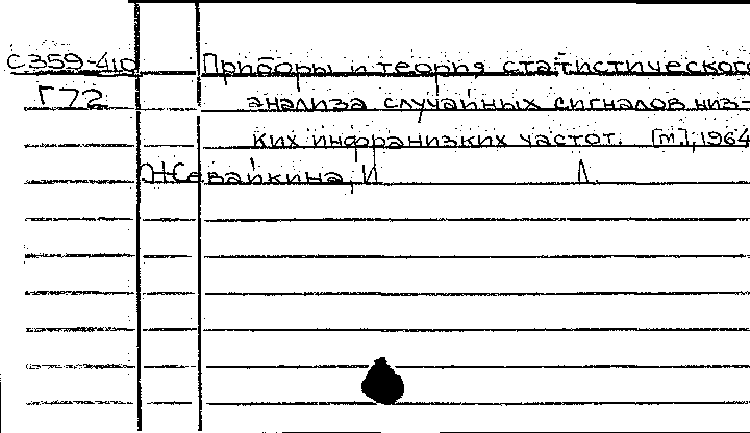 С359-410 Приборы и теория статистического
Г72 анализа случайных сигналов низ-
ких инфранизких частот. [м.], 1964
Жевайкина, И Л.